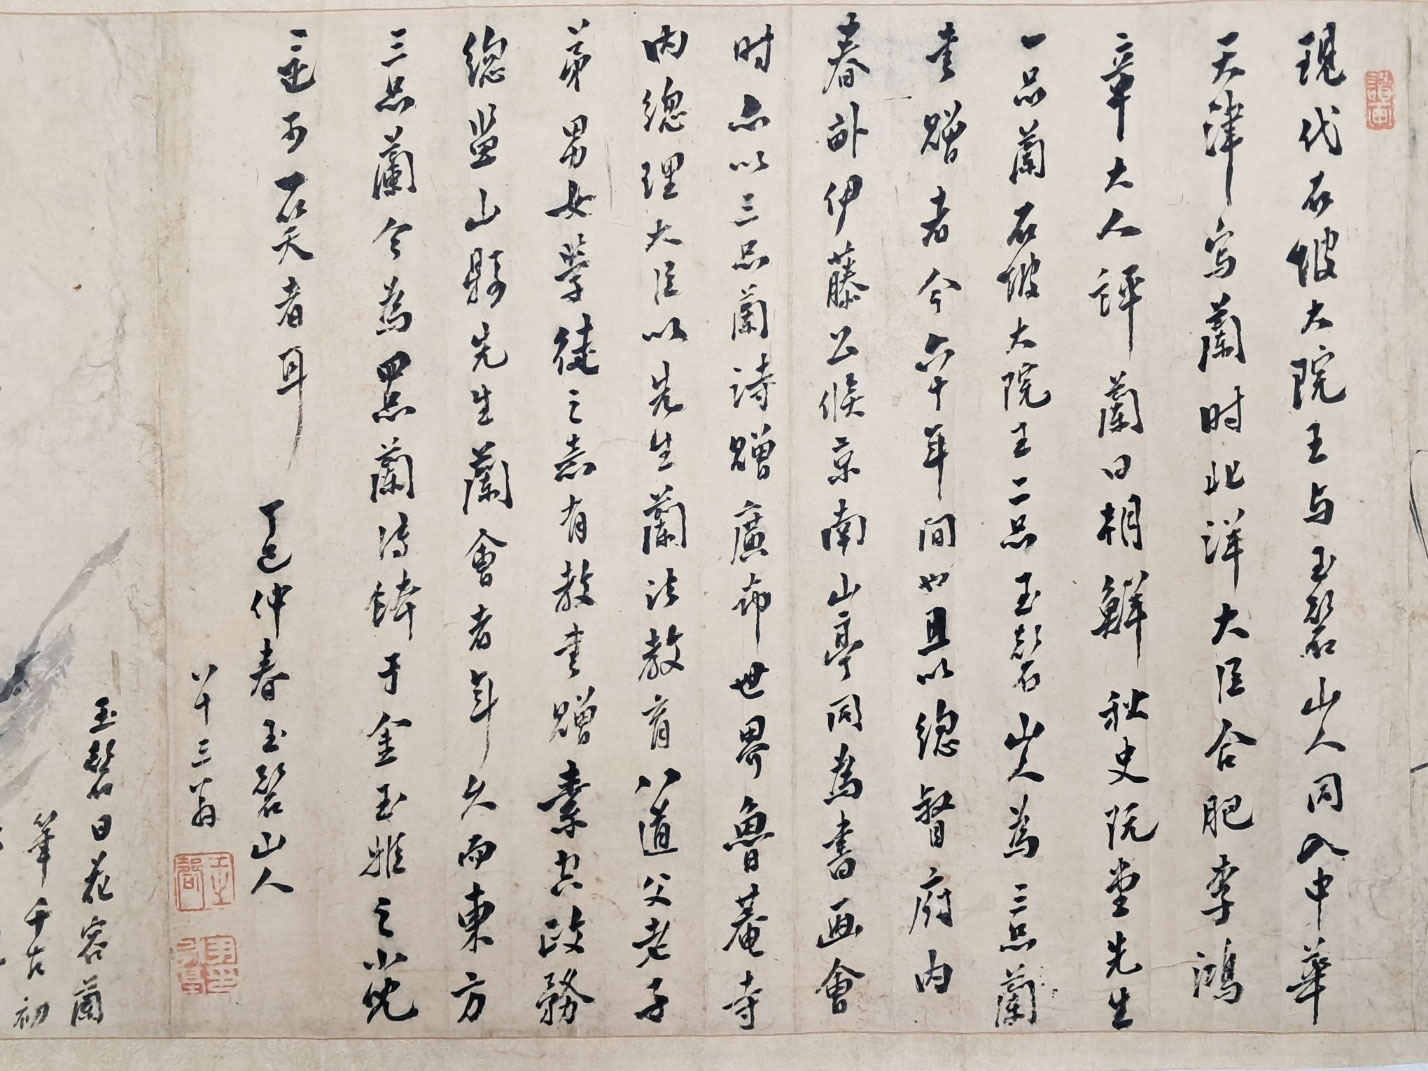 現代石坡大院王与玉磬山人同入中華
天津写蘭时北洋大臣合肥李鴻
章大人評蘭曰相鮮秋史阮堂先生
一品蘭石坡大院王二品玉磬山人為三品蘭
贈者今六十年间也且以總督府内
春畝伊藤公候京南山亭同為書画會
时亦以三品蘭詩贈廣布世界魯菴寺
内總理大臣以先生蘭法教育八道父老子
弟男女學徒之意有教書贈素空政務
總監山縣先生蘭會者年久而東方
三品蘭今為四品蘭于金玉姬之小
可一笑者耳
丁巳仲春玉磬山人
八十三翁
玉磬曰花容蘭
筆千古初